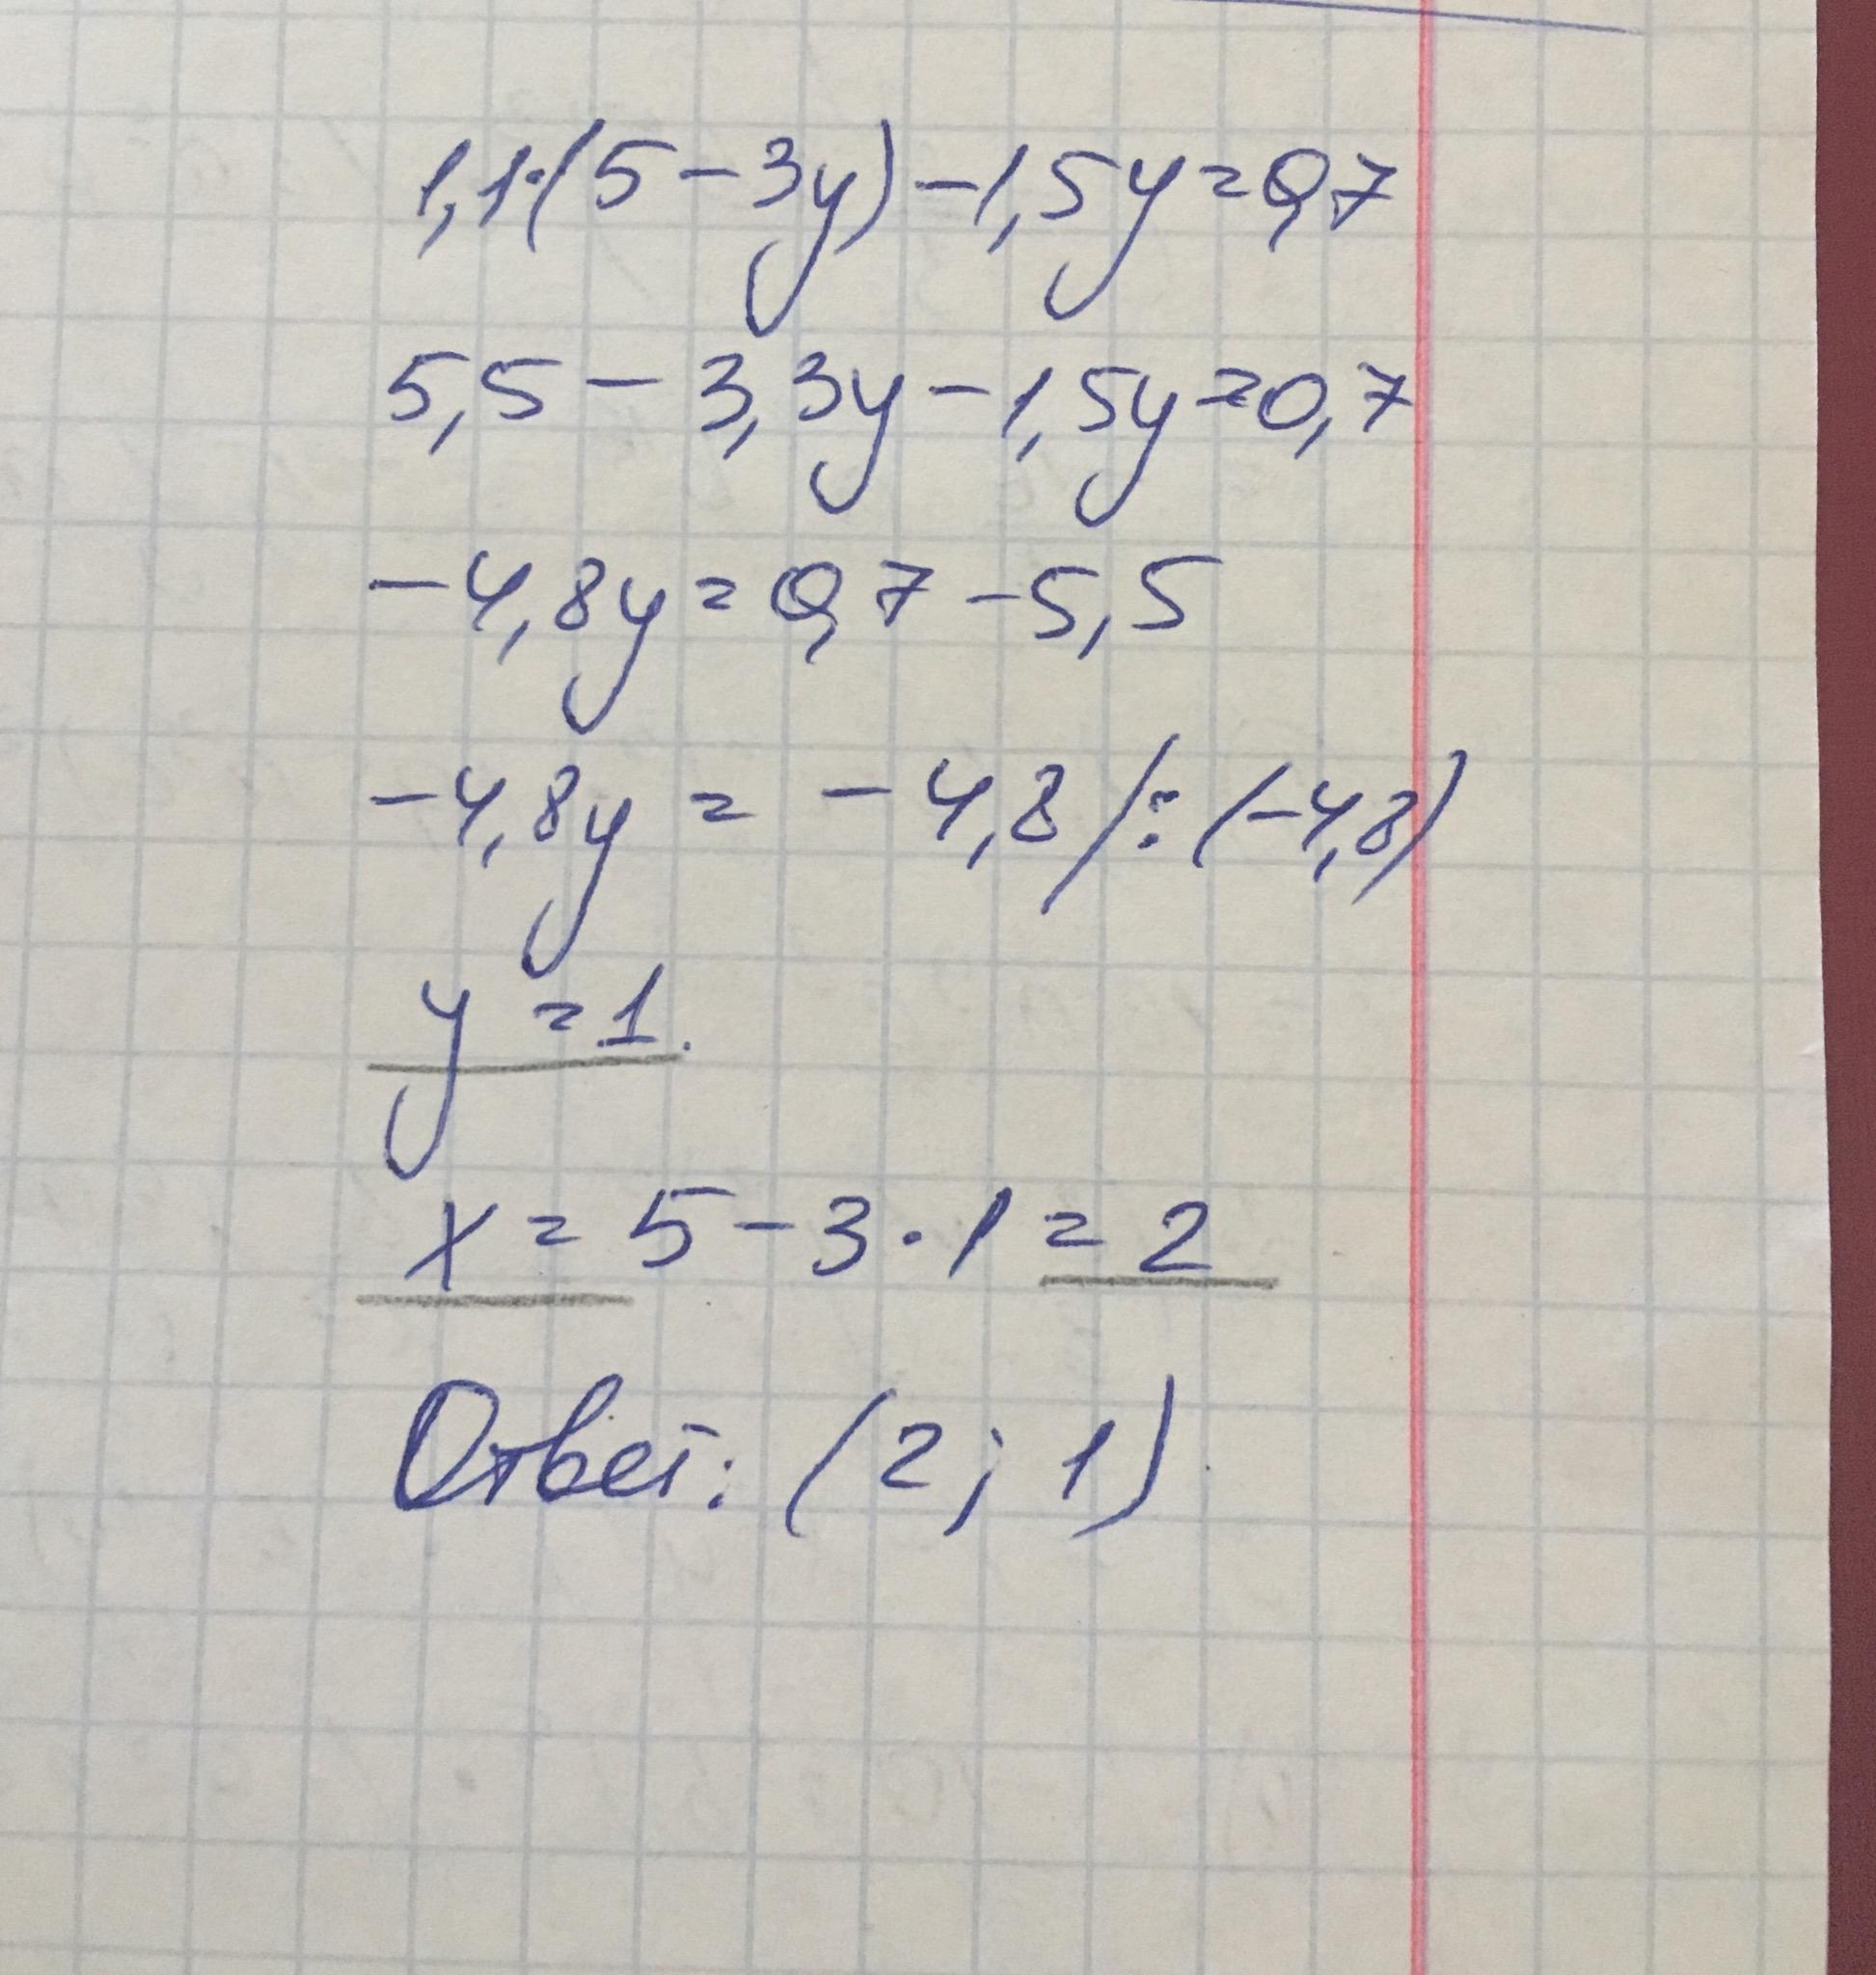 1,1·(5-3y)-1,5y=0,7
5,5-3,3y-1,5y=0,7
-4,8y=0,7-5,5
-4,8y=-4,8/:(-4,8)
y=1.
x=5-3·1=2
Ответ: (2; 1)